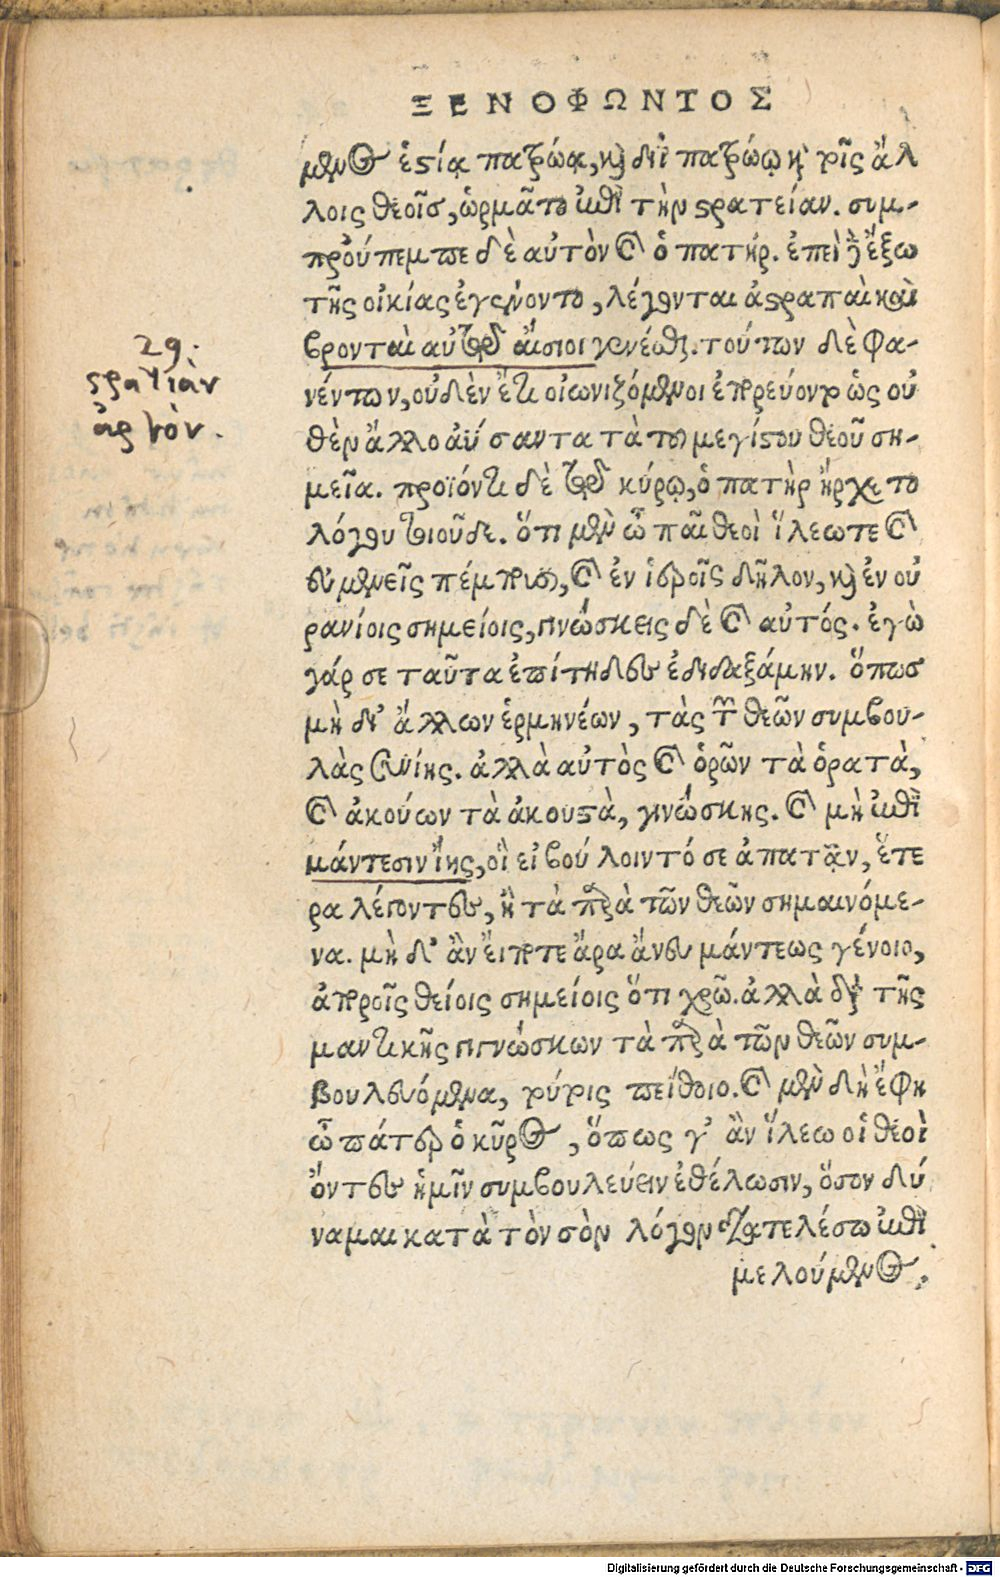 ΞΕΝΟΦΩΝΤΟΣ
μενος ἑστίᾳ πατρῴᾳ, καὶ διῒ πατρῴῳ καὶ τοῖς ἄλ
λοις θεοῖς, ὡρμᾶτο ἐπὶ τὴν στρατείαν. συμ-
προὔπεμπε δὲ αὐτὸν καὶ ὁ πατήρ. ἐπεὶ δὲ ἔξω
τῆς οἰκίας ἐγένοντο, λέγονται ἀστραπαὶ καὶ
βρονταὶ αὐτῷ αἴσιοι γενέσθαι. τούτων δὲ φα-
νέντων, οὐδὲν ἔτι οἰωνιζόμενοι ἐπορεύοντο ὡς οὐ
θὲν ἄλλο λύσαντα τὰ τοῦ μεγίστου θεοῦ ση-
μεῖα. προϊόντι δὲ τῷ κύρῳ, ὁ πατὴρ ἤρχετο
λόγου τοιοῦδε. ὅτι μὲν ὦ παῖ θεοὶ ἵλεῳ τε καὶ
εὐμενεῖς πέμπουσι, καὶ ἐν ἱεροῖς δῆλον, καὶ ἐν οὐ
ρανίοις σημείοις, γινώσκεις δὲ καὶ αὐτός. ἐγὼ
γάρ σε ταῦτα ἐπίτηδες ἐδιδαξάμην. ὅπως
μὴ δι' ἄλλων ἑρμηνέων, τὰς τῶν θεῶν συμβου-
λὰς συνίης. ἀλλὰ αὐτὸς καὶ ὁρῶν τὰ ὁρατὰ,
καὶ ἀκούων τὰ ἀκουστὰ, γινώσκης. καὶ μὴ ἐπὶ
μάντεσιν ἴης, οἳ εἰ βούλοιντό σε ἀπατᾷν, ἕτε
ρα λέγοντες, ἢ τὰ παρὰ τῶν θεῶν σημαινόμε-
να. μὴ δ' ἂν εἴποτε ἄρα ἄνευ μάντεως γένοιο,
ἀποροῖς θείοις σημείοις ὅτι χρῶ. ἀλλὰ διὰ τῆς
μαντικῆς γιγνώσκων τὰ παρὰ τῶν θεῶν συμ-
βουλευόμενα, τούτοις πείθοιο. καὶ μὲν δὴ ἔφη
ὦ πάτερ ὁ κῦρος, ὅπως γ' ἂν ἵλεῳ οἱ θεοὶ
ὄντες ἡμῖν συμβουλεύειν ἐθέλωσιν, ὅσον δύ
ναμαι κατὰ τὸν σὸν λόγον διατελέσω ἐπι
μελούμενος.
29.
στρατιὰν